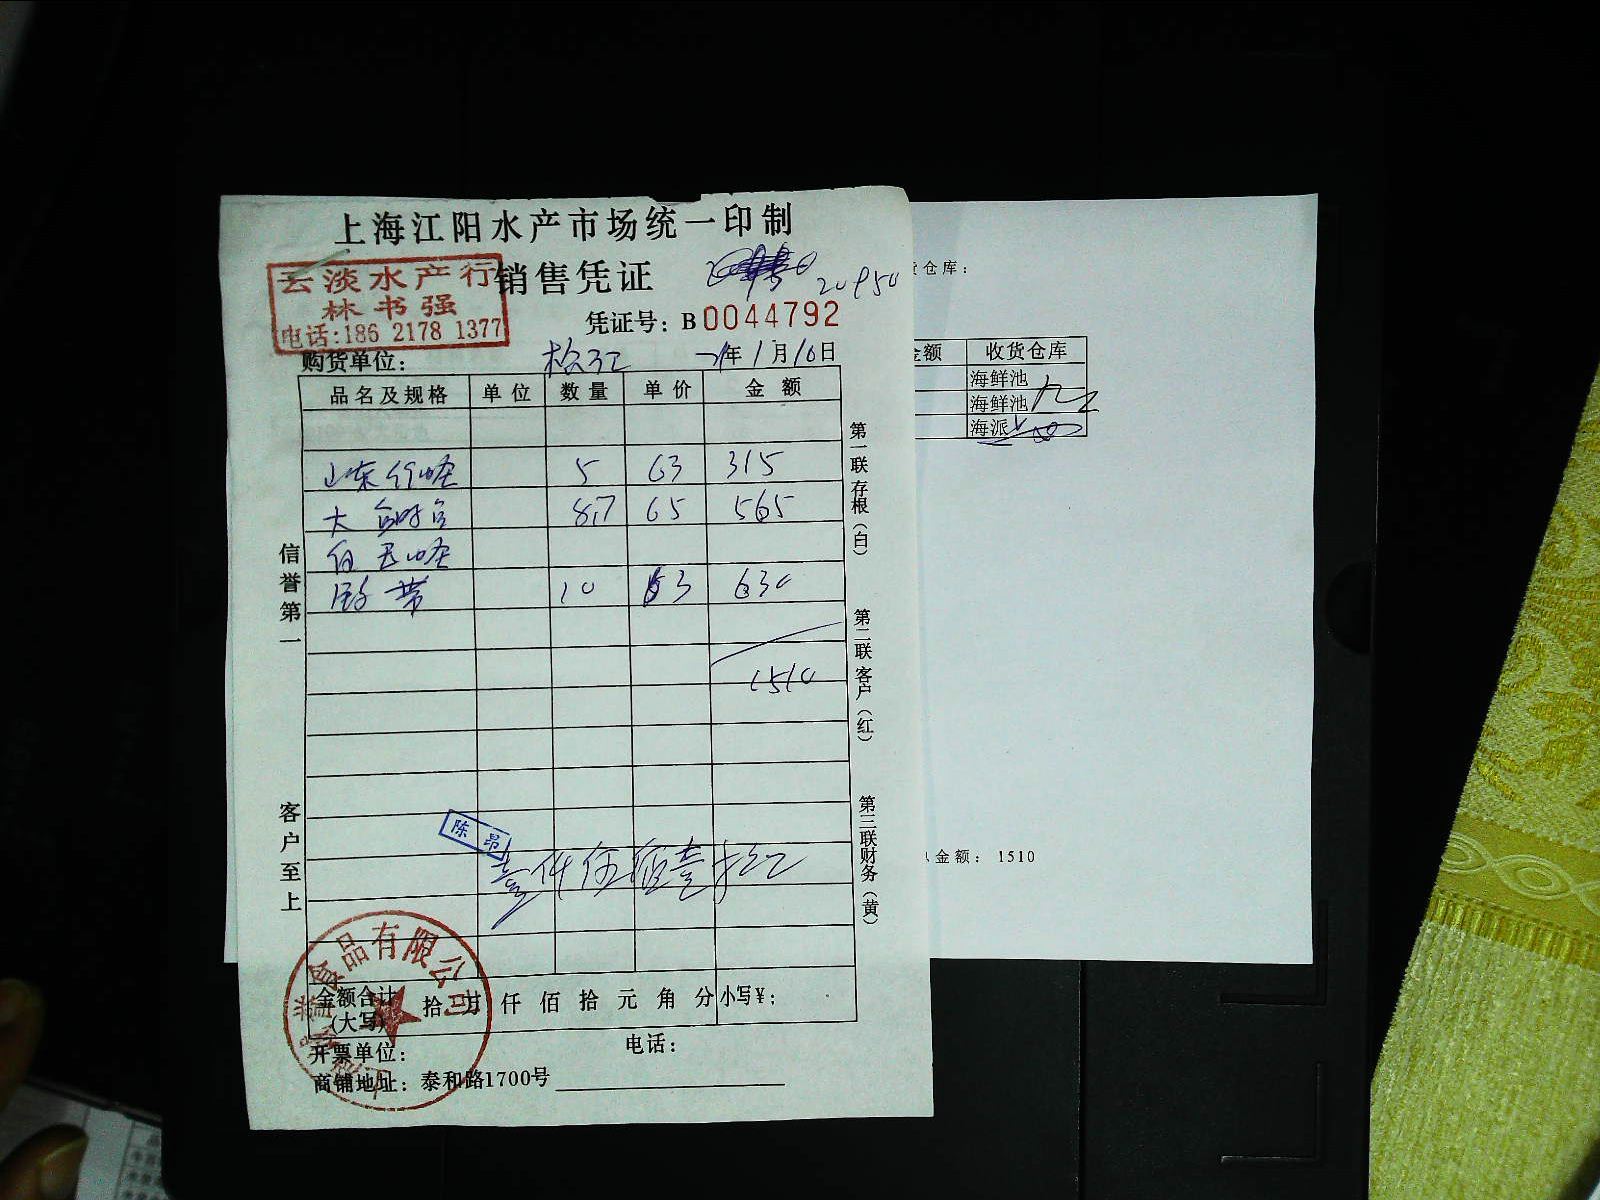 上海江阳水产市场统一印制
云淡水产行
林书强
电话:186 2178 1377
销售凭证
凭证号：B0044792
购货单位： 松江 年1月10日
品名及规格 单位 数量 单价 金额
山东 5 63 315
大 8.7 65 565
10 63 630
1510
陈昂
壹仟伍佰壹拾
金额合计(大写) 拾 万 仟 佰 拾 元 角 分 小写¥：
食品有限公司
开票单位： 电话：
商铺地址：泰和路1700号
信誉第一
客户至上
第一联存根（白）
第二联客户（红）
第三联财务（黄）
仓库：
金额 收货仓库
海鲜池
海鲜池
海派
金额： 1510